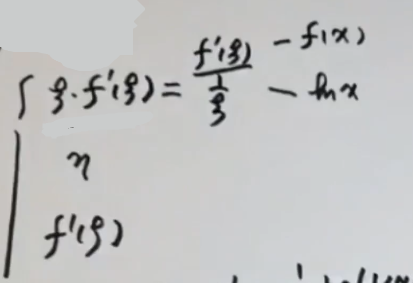 ξ·f'(ξ) = f'(ξ) / (1/ξ) - f(x) - ln x
η
f'(ξ)